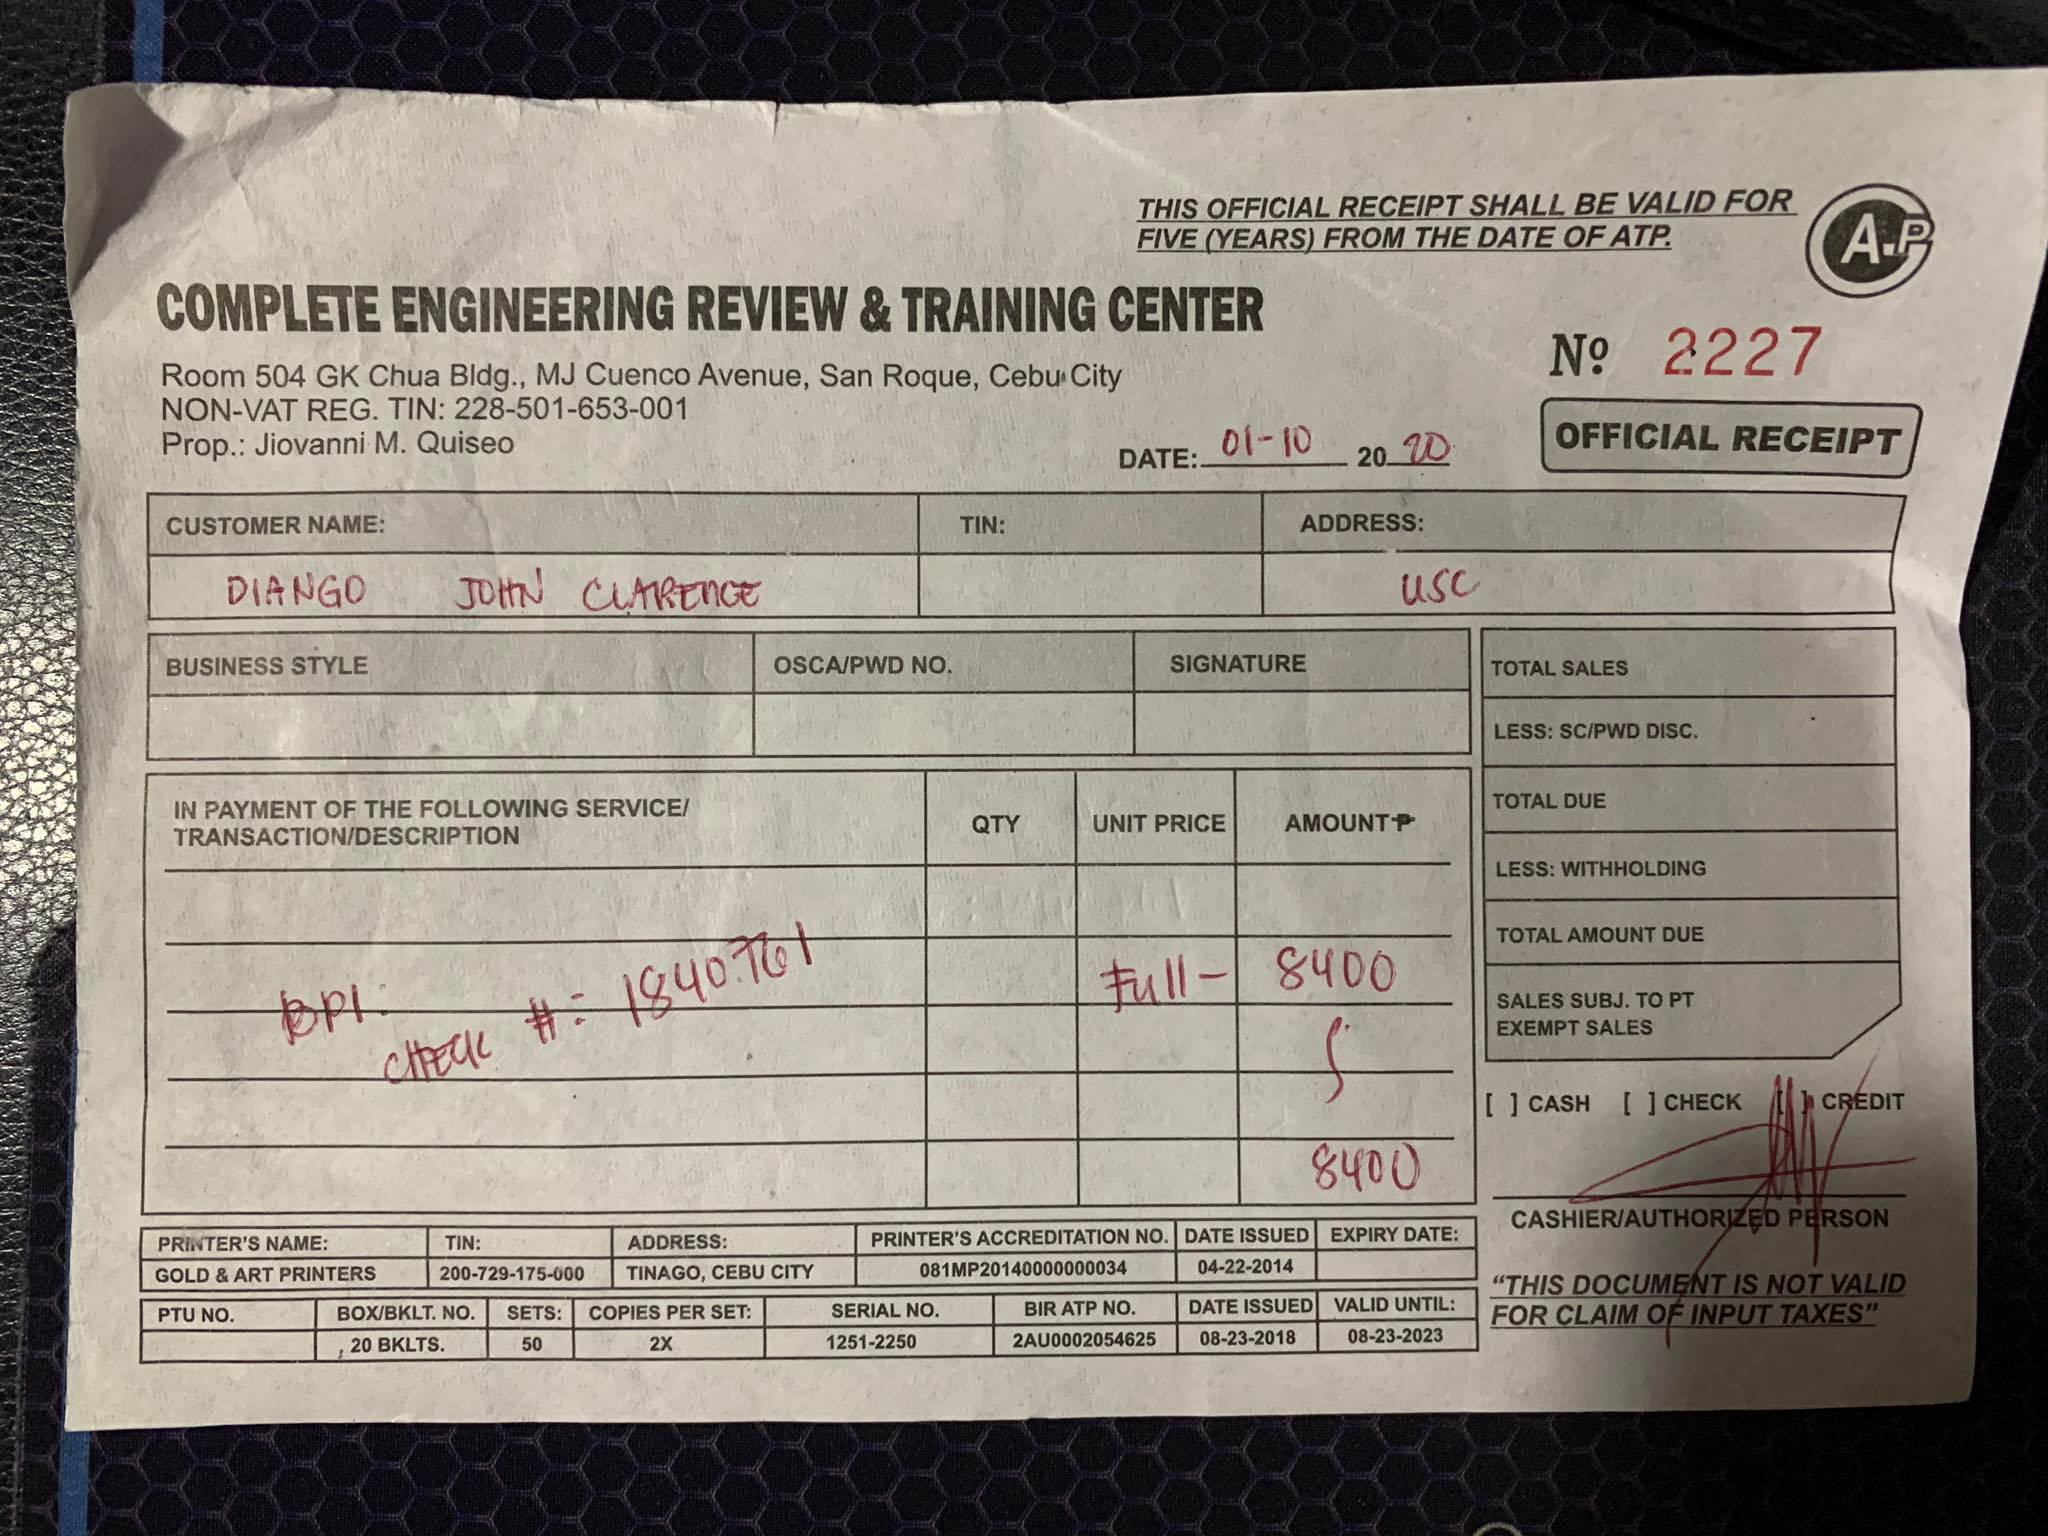 THIS OFFICIAL RECEIPT SHALL BE VALID FOR
FIVE (YEARS) FROM THE DATE OF ATP.
CA-P
COMPLETE ENGINEERING REVIEW & TRAINING CENTER
Room 504 GK Chua Bldg., MJ Cuenco Avenue, San Roque, Cebu City
NON-VAT REG. TIN: 228-501-653-001
Prop.: Jiovanni M. Quiseo
Nº 2227
OFFICIAL RECEIPT
DATE: 01-10 20 20
CUSTOMER NAME: TIN: ADDRESS:
DIANGO JOHN CLARENCE USC
BUSINESS STYLE OSCA/PWD NO. SIGNATURE
TOTAL SALES
LESS: SC/PWD DISC.
TOTAL DUE
LESS: WITHHOLDING
TOTAL AMOUNT DUE
SALES SUBJ. TO PT
EXEMPT SALES
IN PAYMENT OF THE FOLLOWING SERVICE/
TRANSACTION/DESCRIPTION
QTY UNIT PRICE AMOUNT ₱
BPI: Full - 8400
CHECK #: 1840761
8400
[ ] CASH [ ] CHECK [ ] CREDIT
CASHIER/AUTHORIZED PERSON
"THIS DOCUMENT IS NOT VALID
FOR CLAIM OF INPUT TAXES"
PRINTER'S NAME: TIN: ADDRESS: PRINTER'S ACCREDITATION NO. DATE ISSUED EXPIRY DATE:
GOLD & ART PRINTERS 200-729-175-000 TINAGO, CEBU CITY 081MP20140000000034 04-22-2014
PTU NO. BOX/BKLT. NO. SETS: COPIES PER SET: SERIAL NO. BIR ATP NO. DATE ISSUED VALID UNTIL:
20 BKLTS. 50 2X 1251-2250 2AU0002054625 08-23-2018 08-23-2023